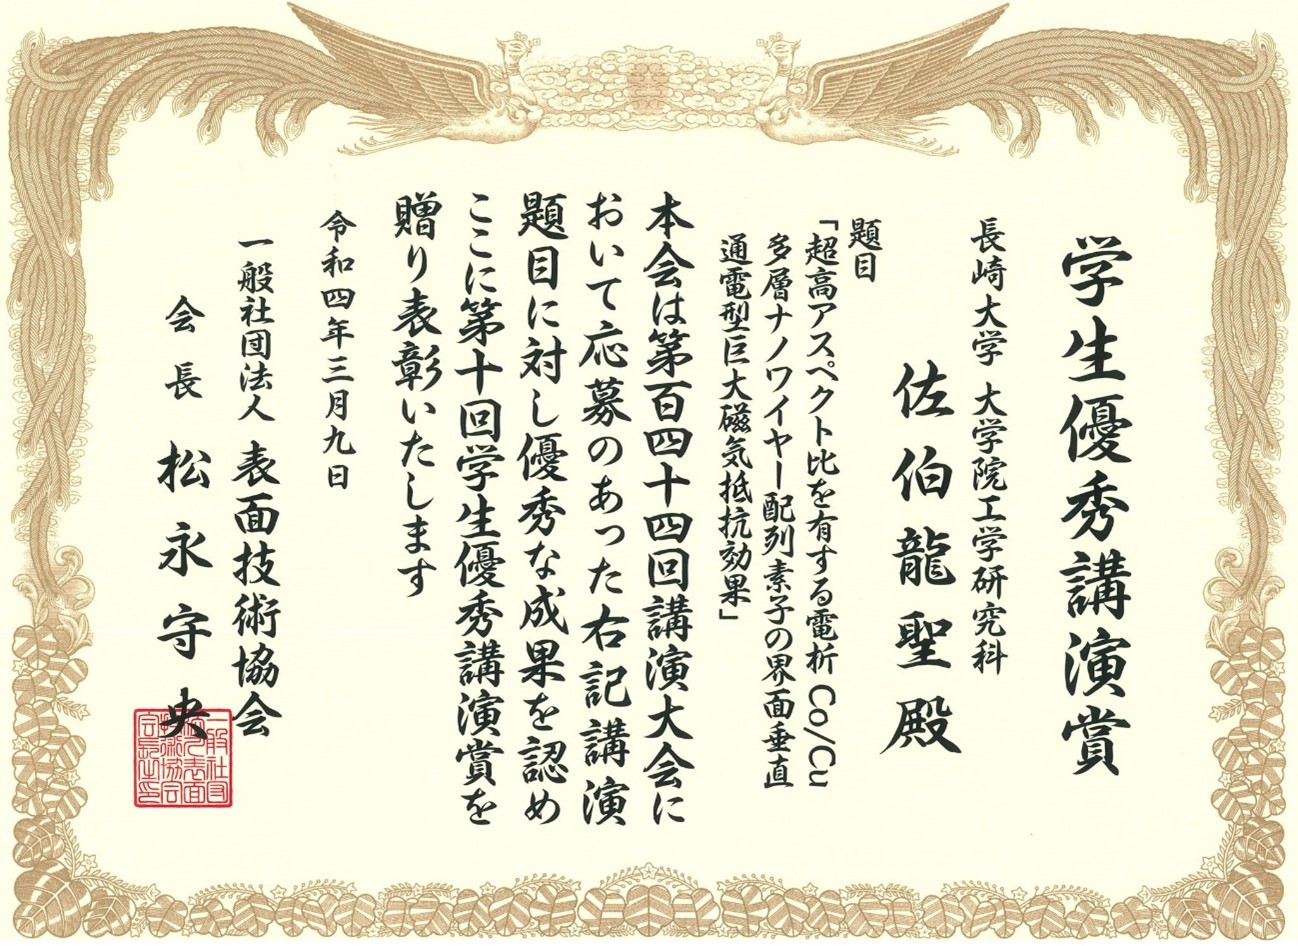 学生優秀講演賞
長崎大学 大学院工学研究科
佐伯龍聖殿
題目
「超高アスペクト比を有する電析 Co/Cu
多層ナノワイヤー配列素子の界面垂直
通電型巨大磁気抵抗効果」
本会は第百四十四回講演大会に
おいて応募のあった右記講演
題目に対し優秀な成果を認め
ここに第十回学生優秀講演賞を
贈り表彰いたします
令和四年三月九日
一般社団法人 表面技術協会
会長 松永守央
一般社団
法人表面
技術協会
会長之印